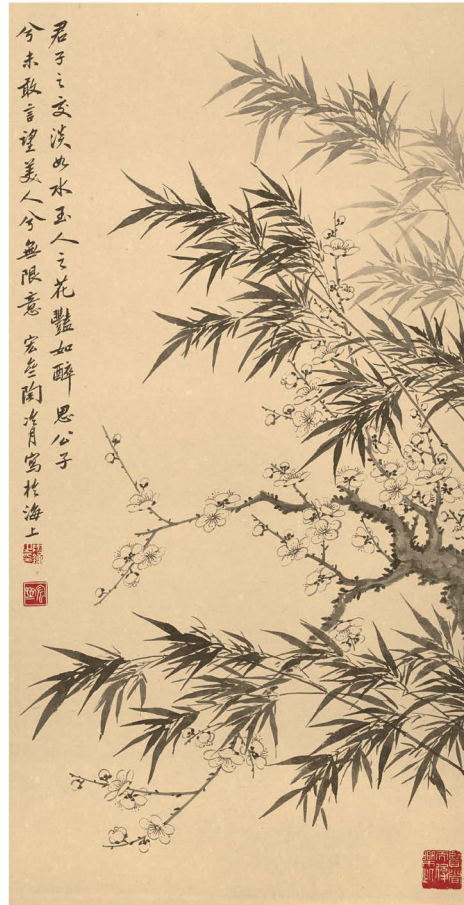 君子之交淡如水玉人之花豔如醉思公子
兮未敢言望美人兮無限意宏盦陶冷月寫於海上